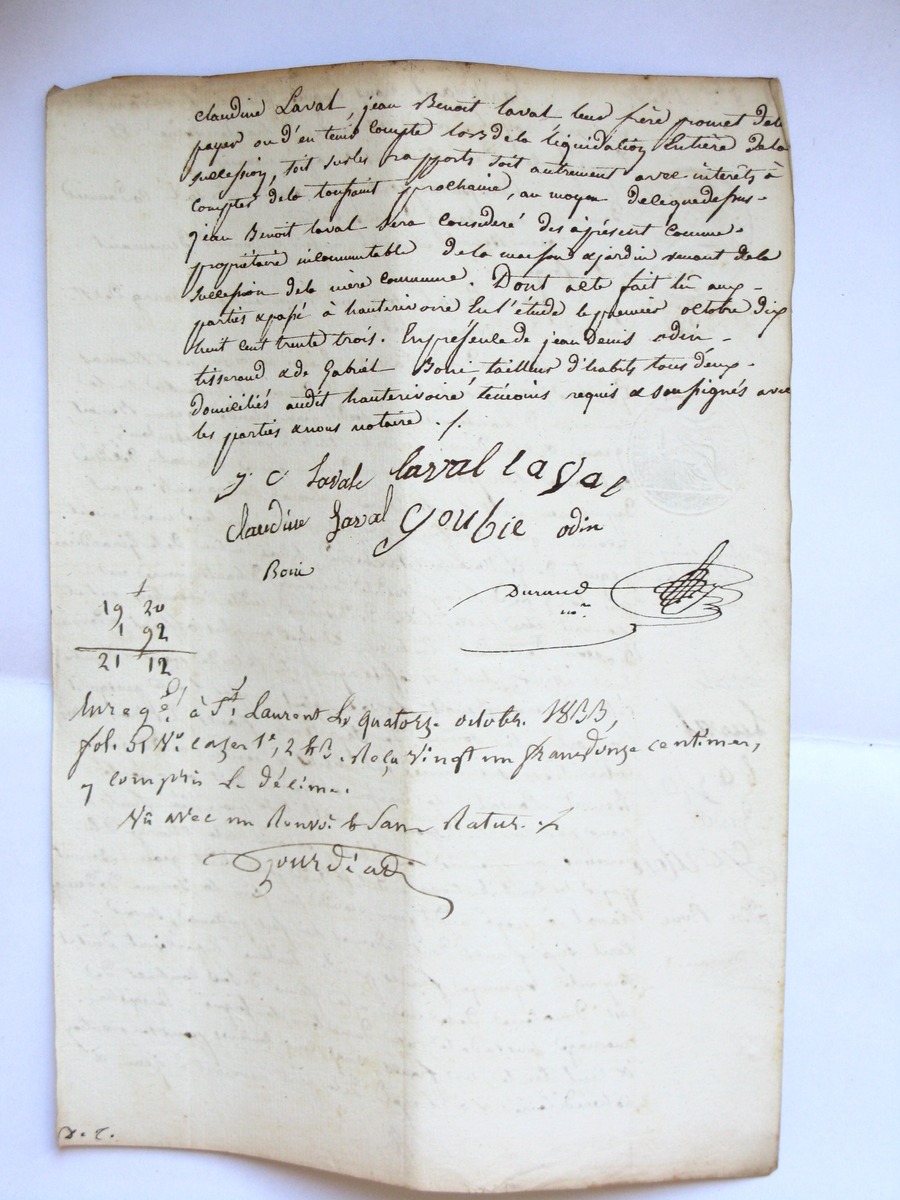 claudine Laval, jean Benoit laval leur frère promet de le
payer ou d'en tenir Compte lors de la liquidation Entière de la
succession, soit sur les rapports soit autrement avec interêts à
compter de la toussaint prochaine, au moyen de ce que dessus
jean Benoit laval sera considéré dès àprésent comme
propriétaire incommutable de la maison & jardin venant de la
succession de la mère commune. Dont acte fait lû aux
parties & passé à hauterivoire En l'étude le premier octobre dix
huit cent trente trois. En présence de jean Denis odin
tisserand & de Gabriel Boni tailleur d'habits tous deux
domiciliés audit hauterivoire témoins requis & soussignés avec
les parties & nous notaire ./.
j. C Laval laval laval
Claudine Laval Goubie odin
Boni
Durand
no.re
19 20
1 92
21 12
Enregé. à St. Laurent Le quatorze octobre 1833,
fol. No. cases 1e, 2 & 3. Reçu vingt un francs douze centimes,
y compris le décime.
Nû avec un Renvoi & Sans Rature
D. C.